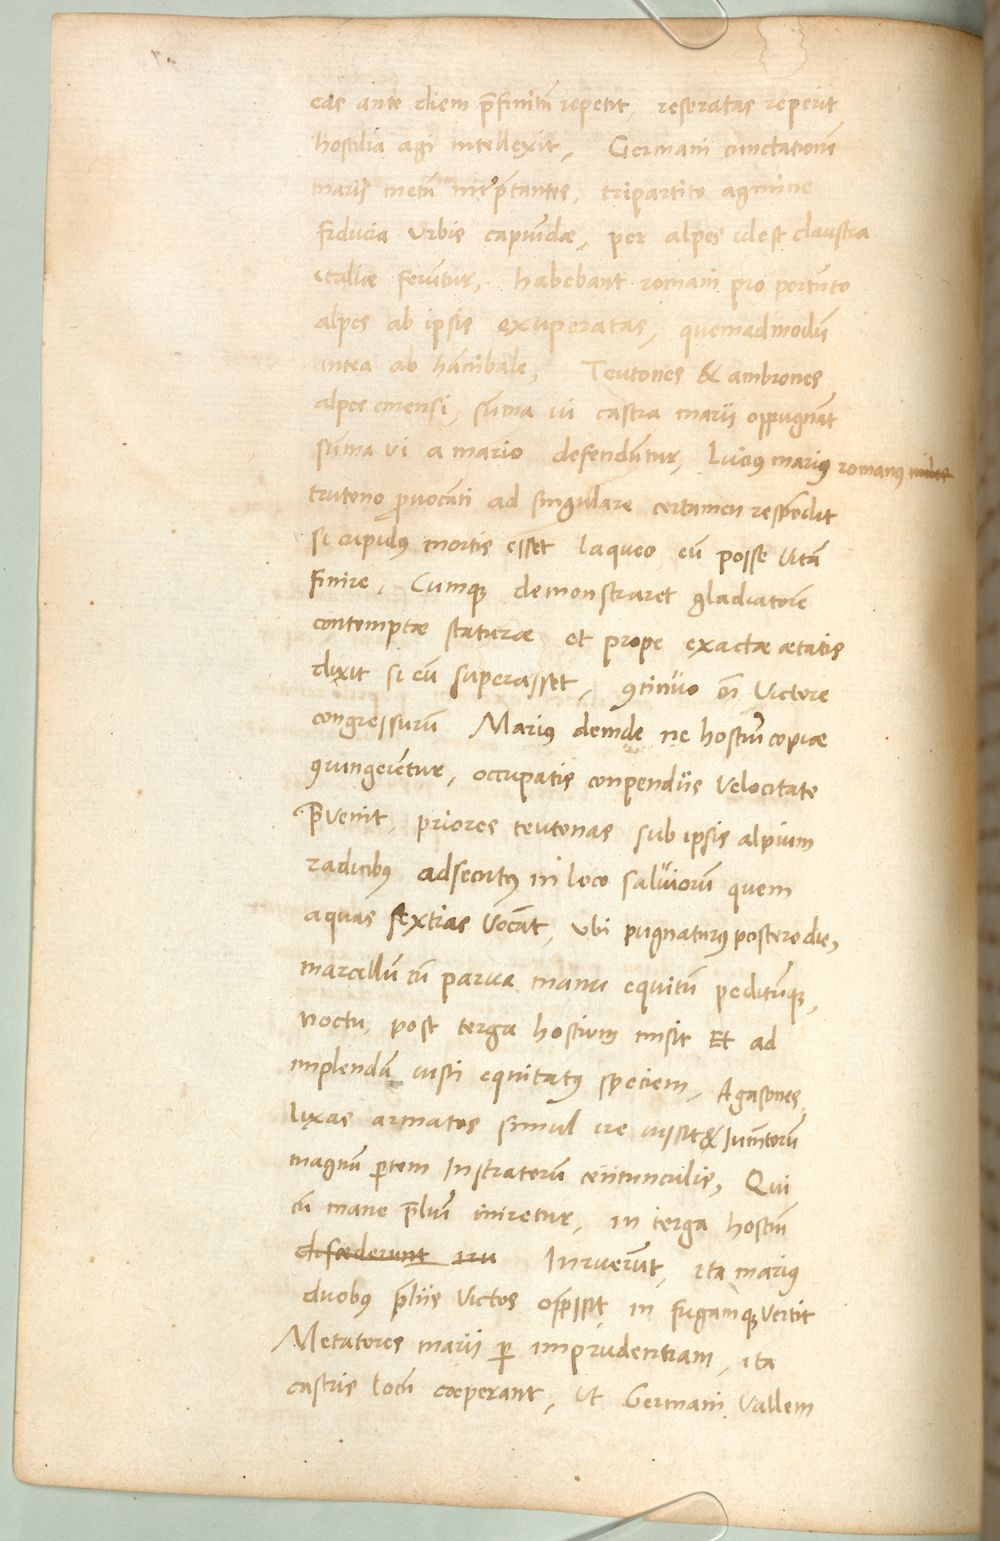 eas ante diem p̄finitū repetit, reseratas reperit
hostilia agi intellexit, Germani cunctationē
marij metū interp̄tantes, tripartito agmine
fiducia Urbis capiūdæ, per alpes idest claustra
italiæ ferūtur, habebant romani pro portēto
alpes ab ipsis exuperatas, quemadmodū
antea ab hānibale, Teutones & ambrones
alpes emensi, sūma ui castra marii oppugnāt
sūma vi a mario defendūtur, Luciꝰ mariꝰ romanꝰ miles
teutono ꝓuocāti ad singulare certamen respōdit
si cupidꝰ mortis esset laqueo eū posse vitā
finire, Cumqꝫ demonstraret gladiatorē
contemptæ staturæ et prope exactæ ætatis
dixit si eū superasset, ꝯtinuo cū Victore
congressurū Mariꝰ deinde ne hostiū copiæ
ꝯiungerētur, occupatis conpendiis Velocitate
p̄venit, priores teutonas sub ipsis alpium
radicibꝰ adsecutꝰ in loco saluiorū quem
aquas sextias Vocāt, ubi pugnaturꝰ postero die,
marcellū cū parua manu equitū peditūqꝫ,
noctu, post terga hostium misit Et ad
implendā iusti equitatꝰ speciem, Agasones,
lixas armatos simul ire iussit & Iumētorū
magnū ꝑtem Instratorū centunculis, Qui
cū mane p̄liū iniretur, in terga hostiū
discederunt iru Inruerūt, ita mariꝰ
duobꝰ p̄liis Victos opp̄ssit in fugamqꝫ vertit
Metatores marii ꝑ imprudentiam, ita
castris locū cœperant, Ut Germani Vallem